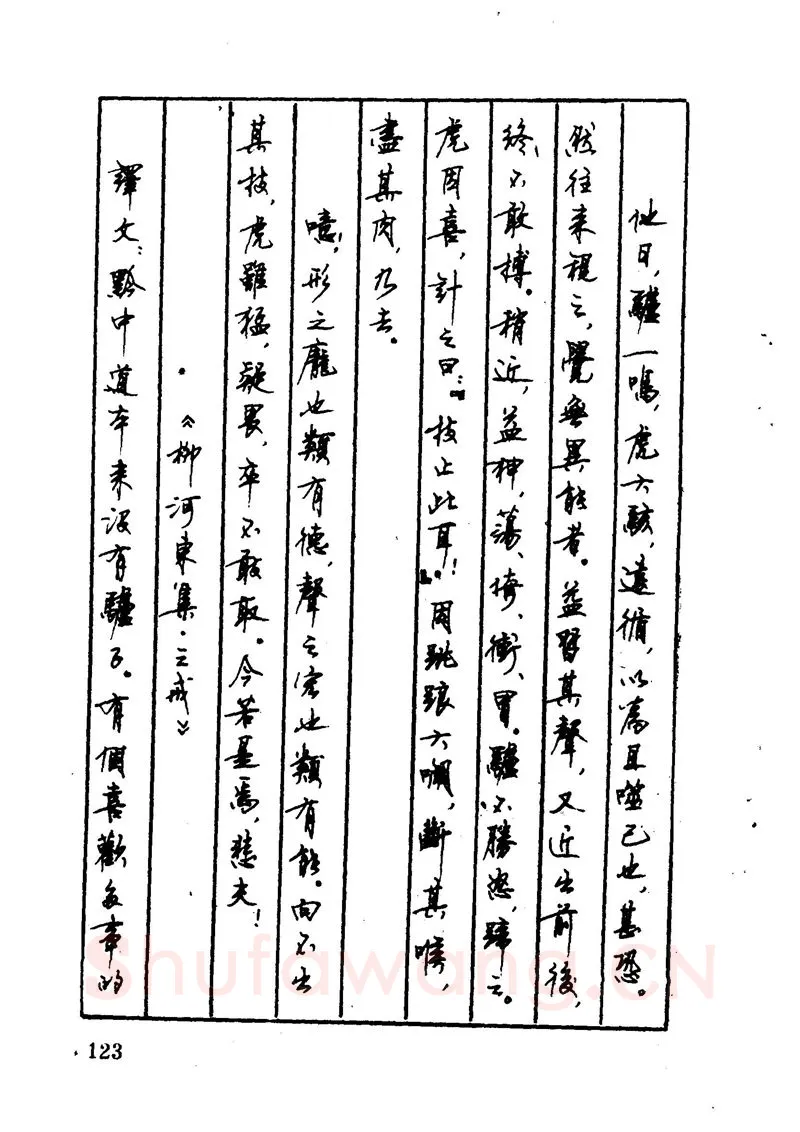 他日，驢一鳴，虎大駭，遠循，以爲且噬己也，甚恐。
然往來視之，覺無異能者。益習其聲，又近出前後，
終不敢搏。稍近，益狎，蕩、倚、衝、冒。驢不勝怒，蹄之。
虎因喜，計之曰：“技止此耳！”因跳踉大㘎，斷其喉，
盡其肉，乃去。
噫，形之龐也類有德，聲之宏也類有能。向不出
其技，虎雖猛，疑畏，卒不敢取。今若是焉，悲夫！
《柳河東集·三戒》
譯文：黔中道本來没有驢子。有個喜歡多事的
123
Shufawang.CN